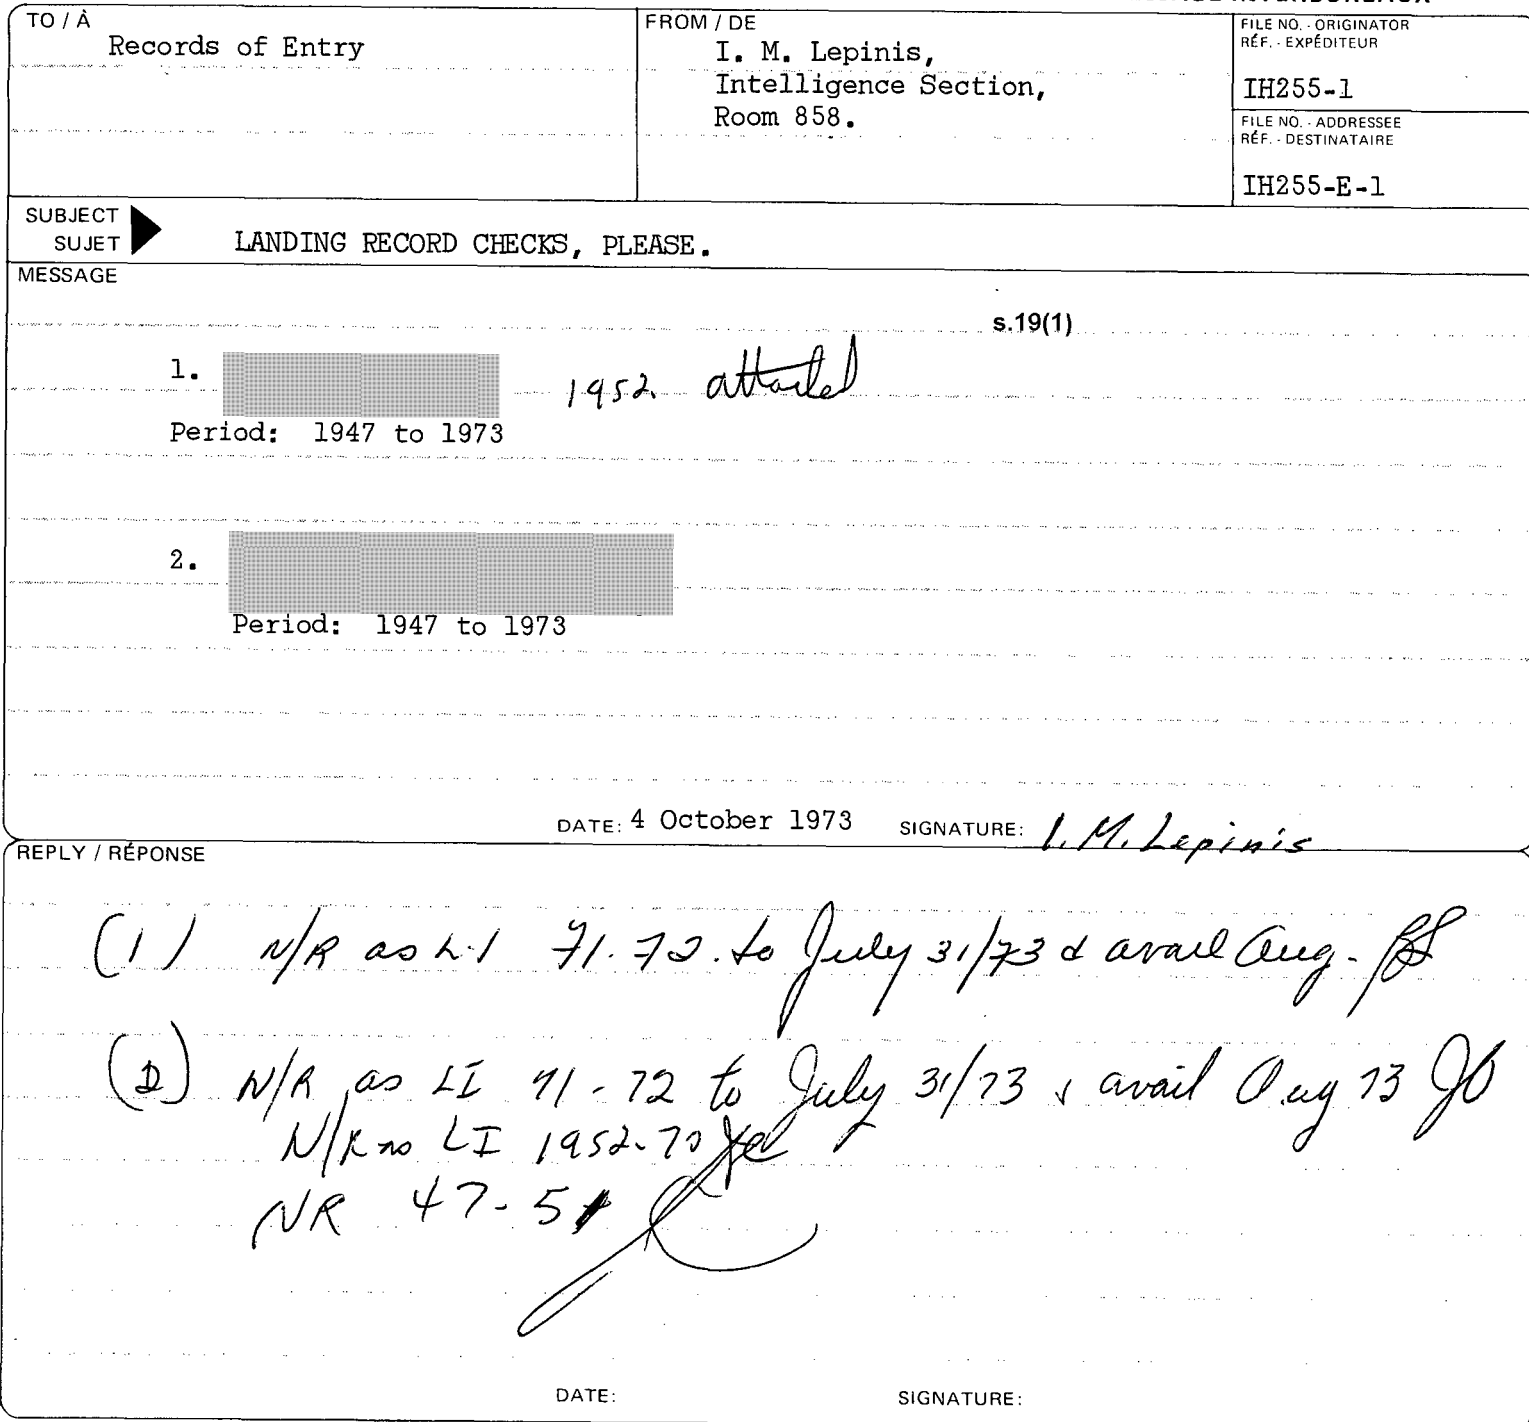 TO / À
Records of Entry
FROM / DE
I. M. Lepinis,
Intelligence Section,
Room 858.
FILE NO. - ORIGINATOR
RÉF. - EXPÉDITEUR
IH255-1
FILE NO. - ADDRESSEE
RÉF. - DESTINATAIRE
IH255-E-1
SUBJECT
SUJET
LANDING RECORD CHECKS, PLEASE.
MESSAGE
s.19(1)
1.
1952 attached
Period: 1947 to 1973
2.
Period: 1947 to 1973
DATE: 4 October 1973 SIGNATURE: I. M. Lepinis
REPLY / RÉPONSE
(1) N/R as L.I 71.72. to July 31/73 & avail Aug.
(2) N/R as LI 71-72 to July 31/73 & avail Aug 73
N/R as LI 1952-70
NR 47-51
DATE: SIGNATURE: